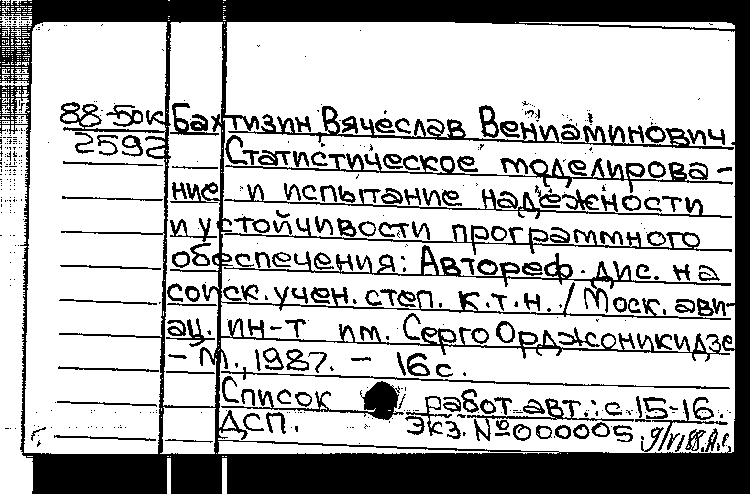 88-5ок Бахтизин, Вячеслав Вениаминович.
2592 Статистическое моделирова-
ние и испытание надежности
и устойчивости программного
обеспечения: Автореф. дис. на
соиск. учен. степ. к.т.н. / Моск. ави-
ац. ин-т им. Серго Орджоникидзе
- М., 1987. - 16 с.
Список работ авт.: с. 15-16.
ДСП. Экз. №000005